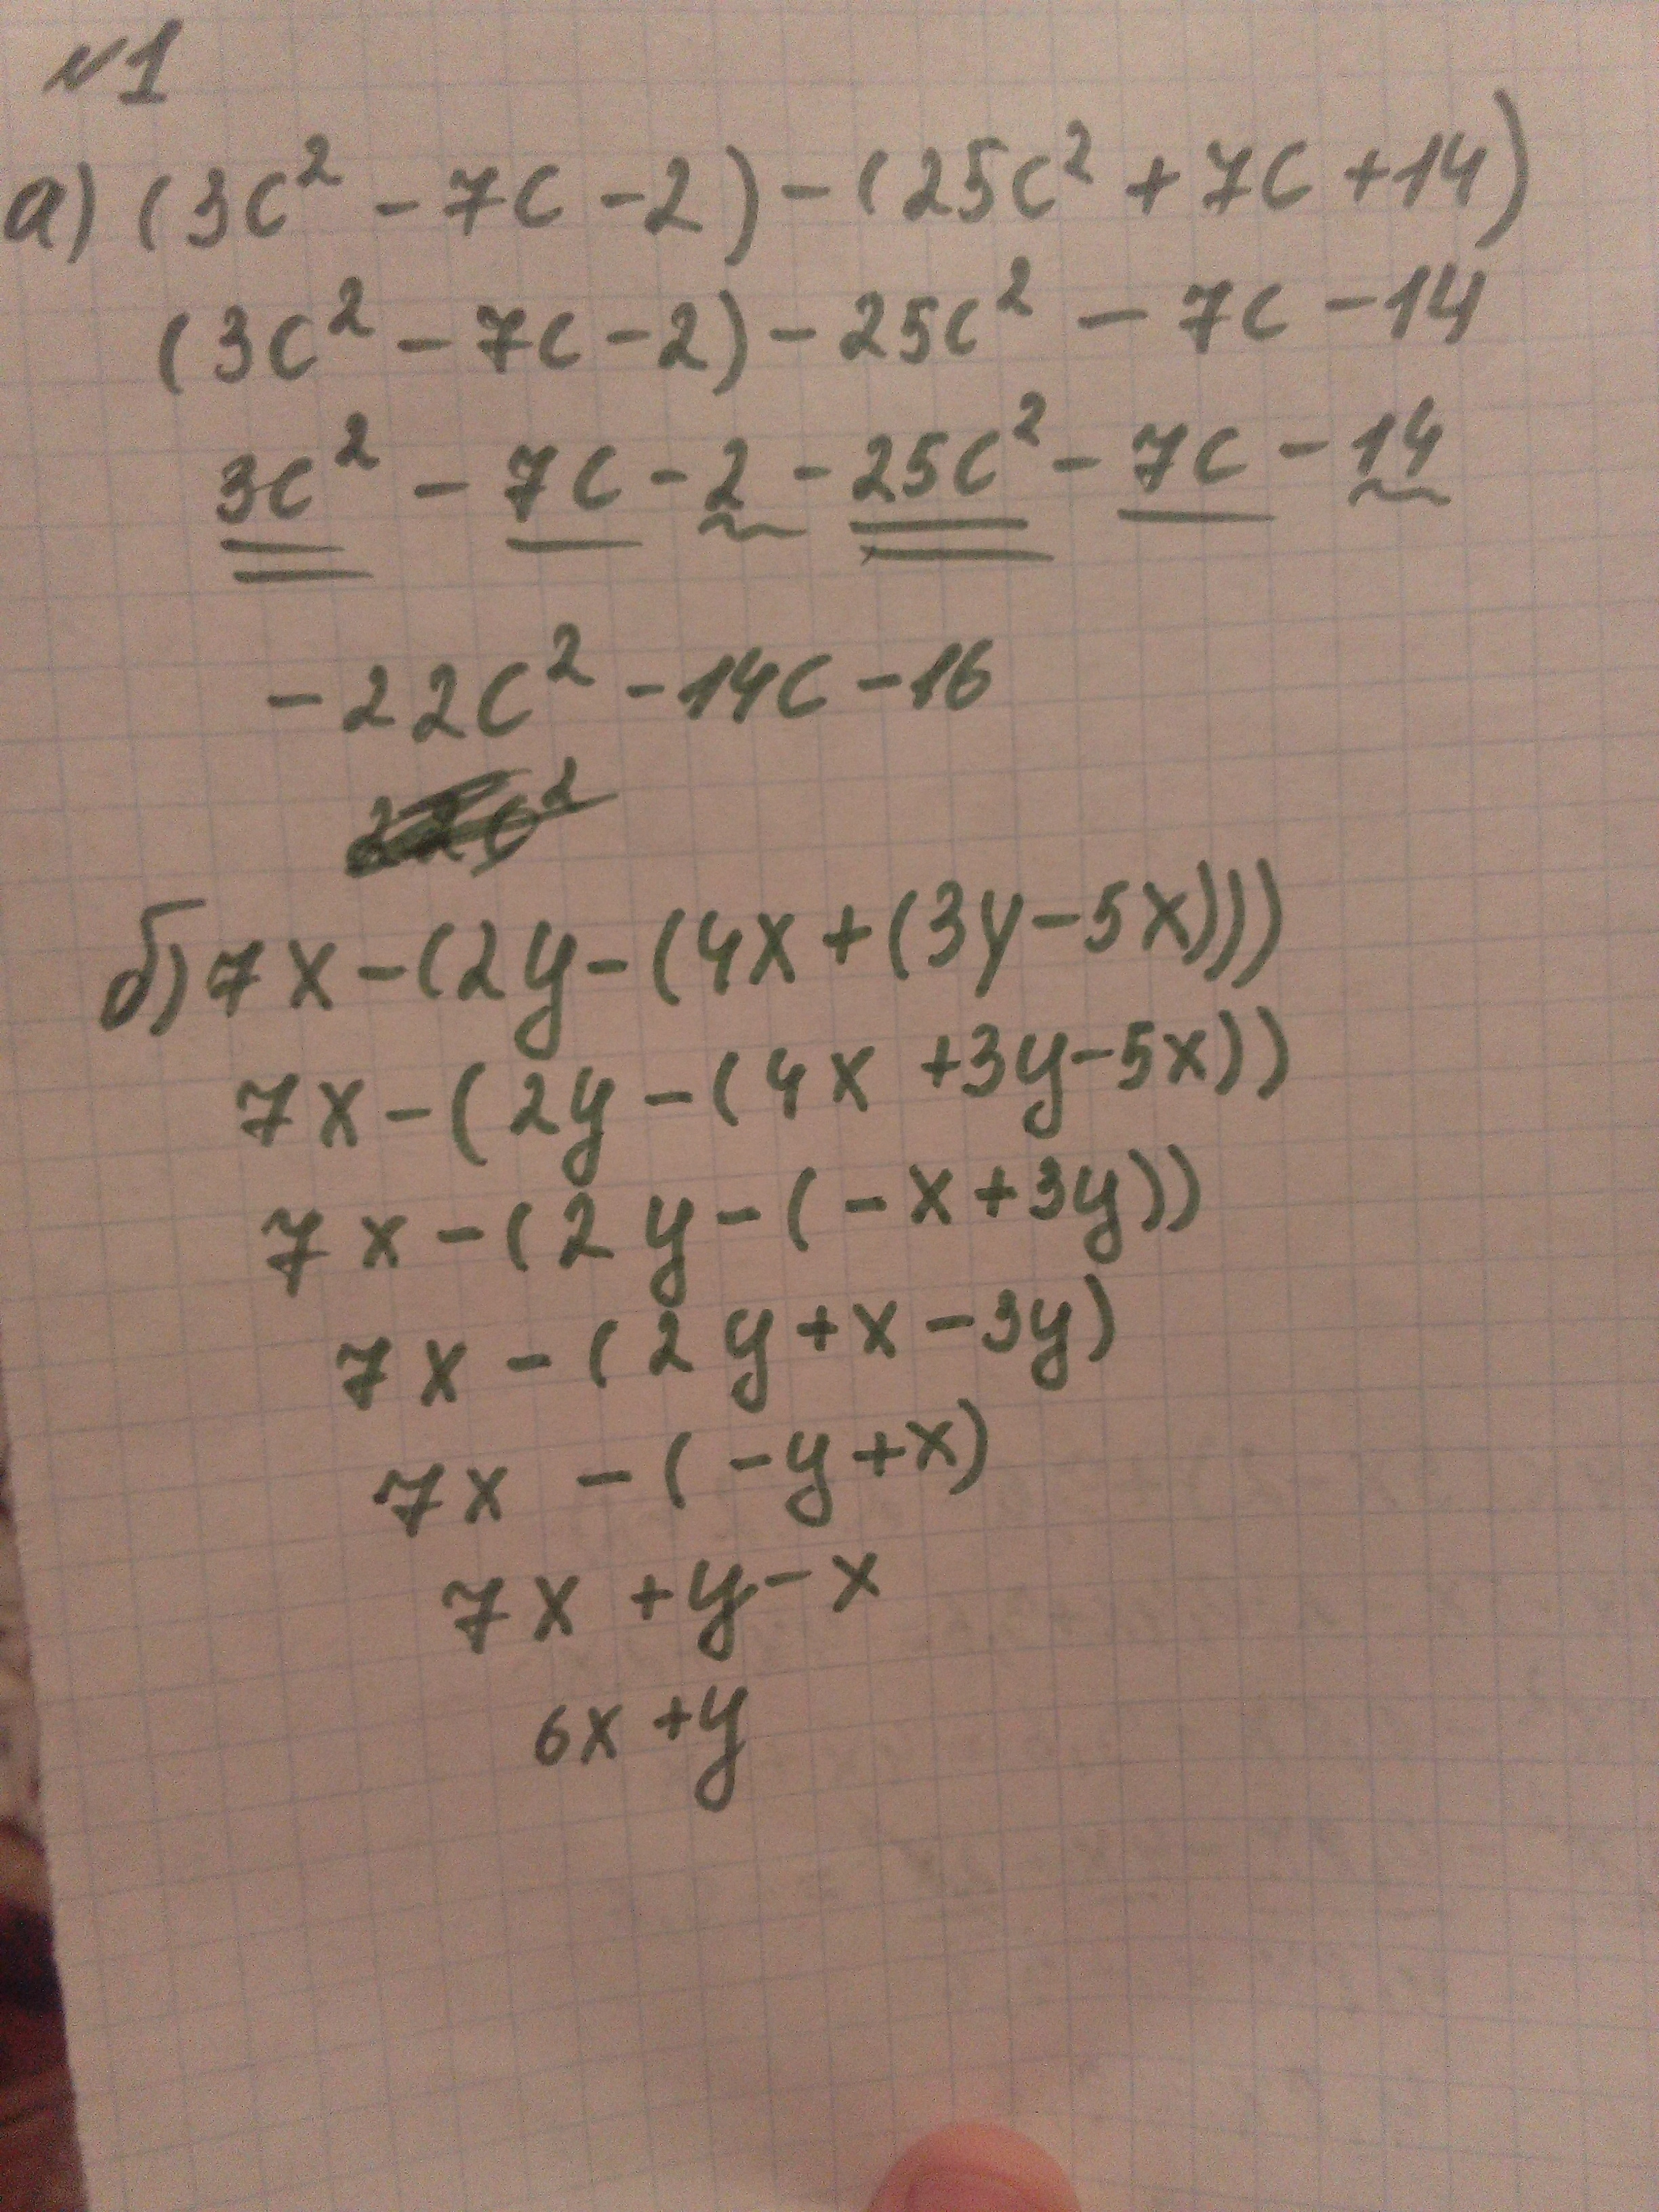 №1
а) (3c² - 7c - 2) - (25c² + 7c + 14)
(3c² - 7c - 2) - 25c² - 7c - 14
3c² - 7c - 2 - 25c² - 7c - 14
- 22c² - 14c - 16
б) 7x - (2y - (4x + (3y - 5x)))
7x - (2y - (4x + 3y - 5x))
7x - (2y - (-x + 3y))
7x - (2y + x - 3y)
7x - (-y + x)
7x + y - x
6x + y